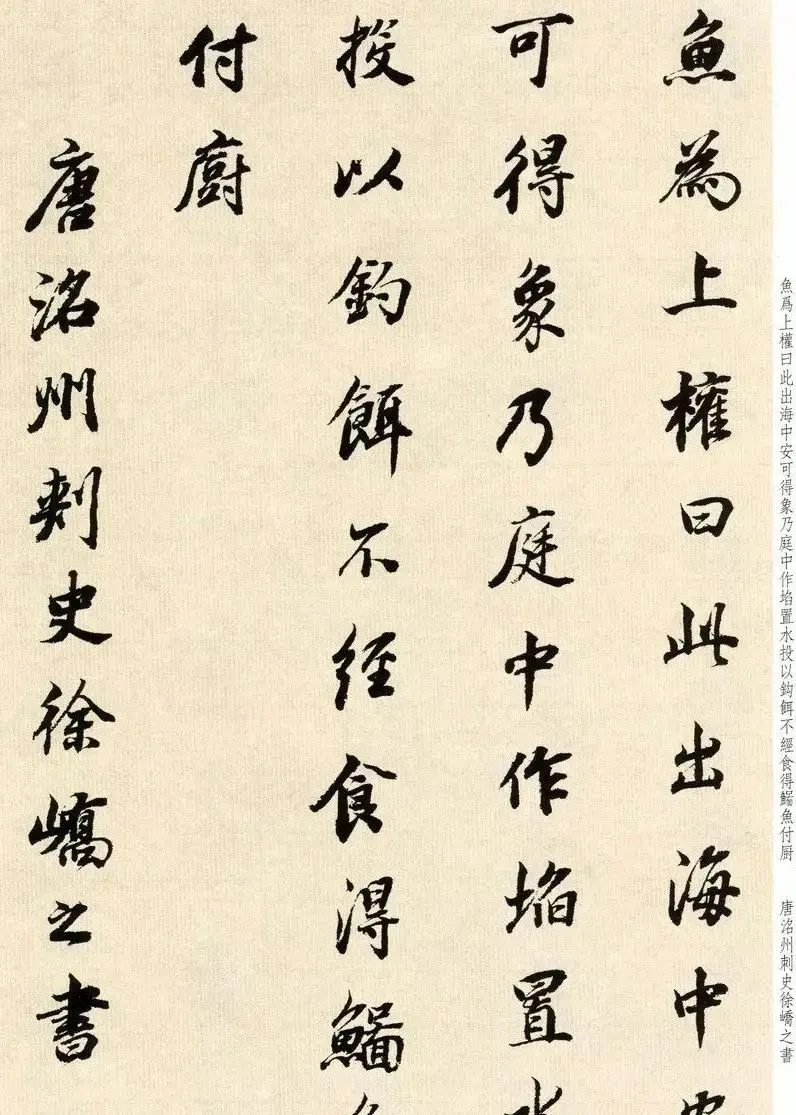 魚為上權曰此出海中安
可得象乃庭中作埳置水
投以鈎餌不經食得鯔魚
付廚
唐洺州刺史徐嶠之書
魚爲上權曰此出海中安可得象乃庭中作埳置水投以鈎餌不經食得鯔魚付厨 唐洺州刺史徐嶠之書